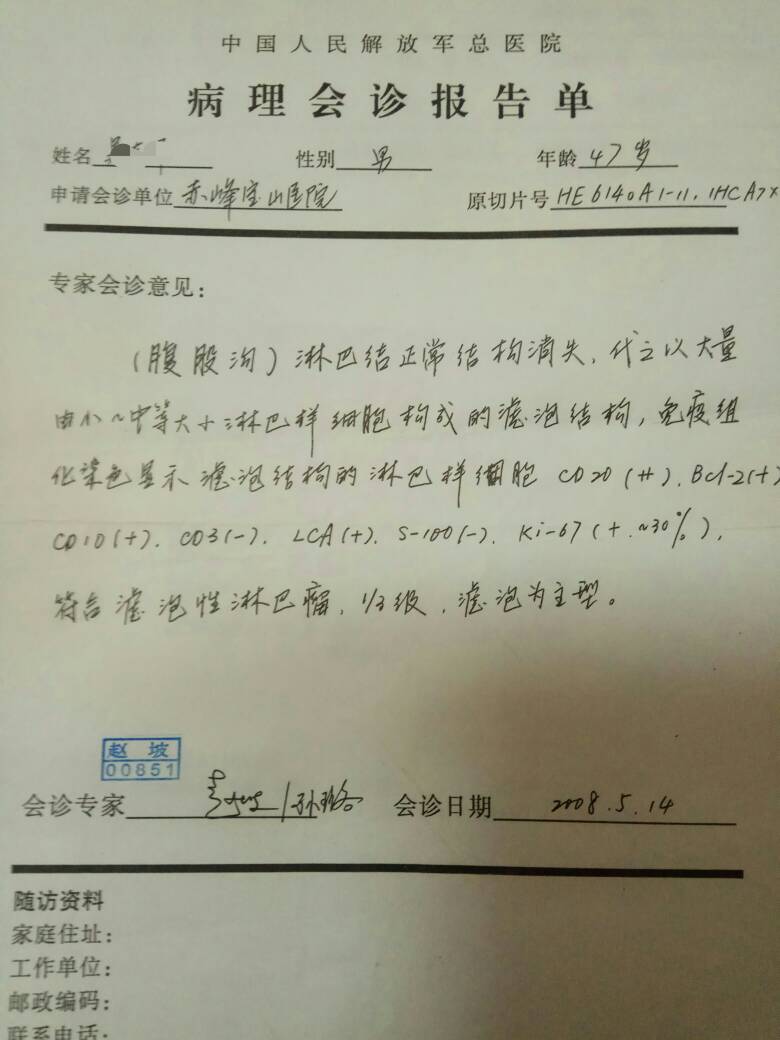 中国人民解放军总医院
病理会诊报告单
姓名 性别 男 年龄 47岁
申请会诊单位 赤峰宝山医院 原切片号 HE6140A1-11. IHCA7X
专家会诊意见:
(腹股沟)淋巴结正常结构消失,代之以大量
由小~中等大小淋巴样细胞构成的滤泡结构,免疫组
化染色显示滤泡结构的淋巴样细胞 CD20(++). Bcl-2(+)
CD10(+). CD3(-). LCA(+). S-100(-). Ki-67(+.~30%),
符合滤泡性淋巴瘤,1/3级,滤泡为主型。
赵坡
00851
会诊专家 会诊日期 2008.5.14
随访资料
家庭住址:
工作单位:
邮政编码:
联系电话: